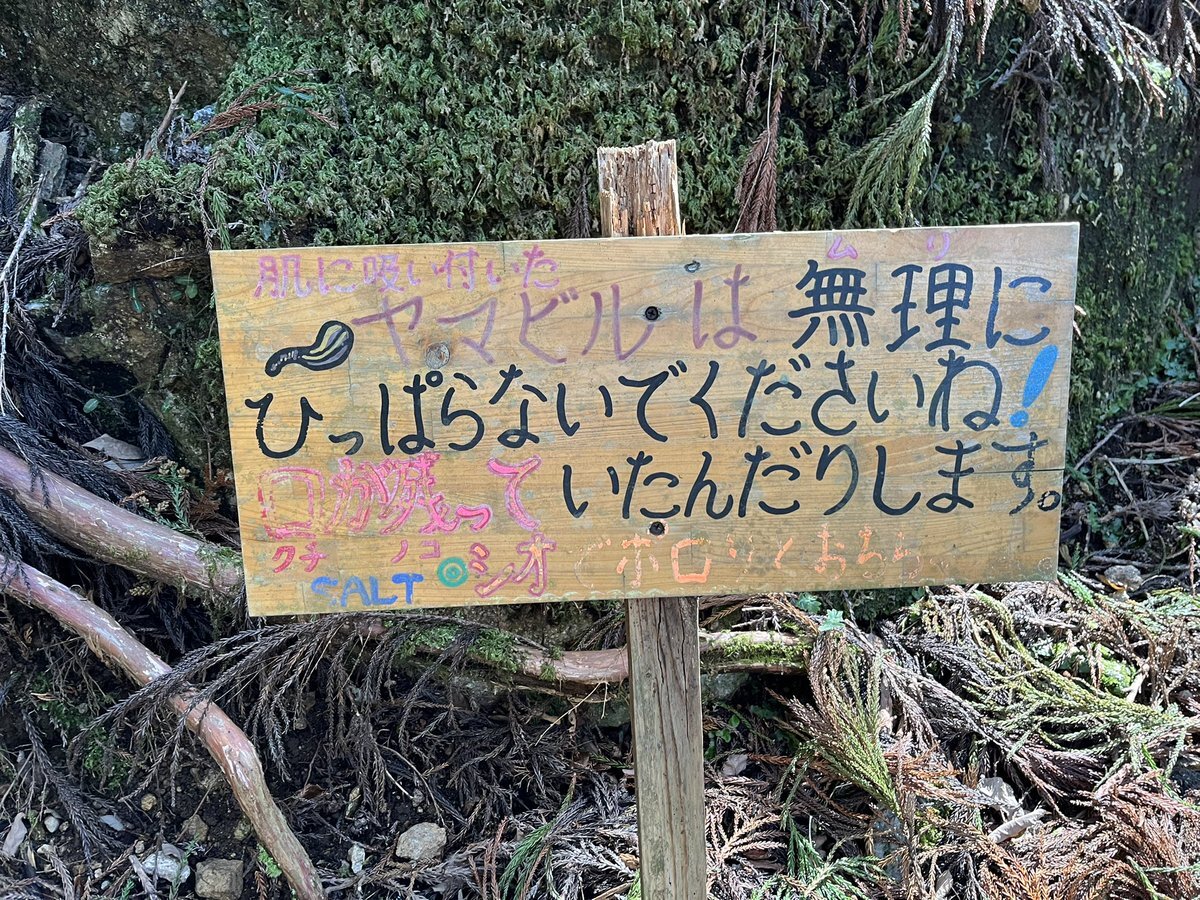 肌に吸い付いた
ヤマビルは無理に
ムリ
ひっぱらないでくださいね!
口が残っていたんだりします。
クチ ノコ
SALT シオ でホロリとおちる